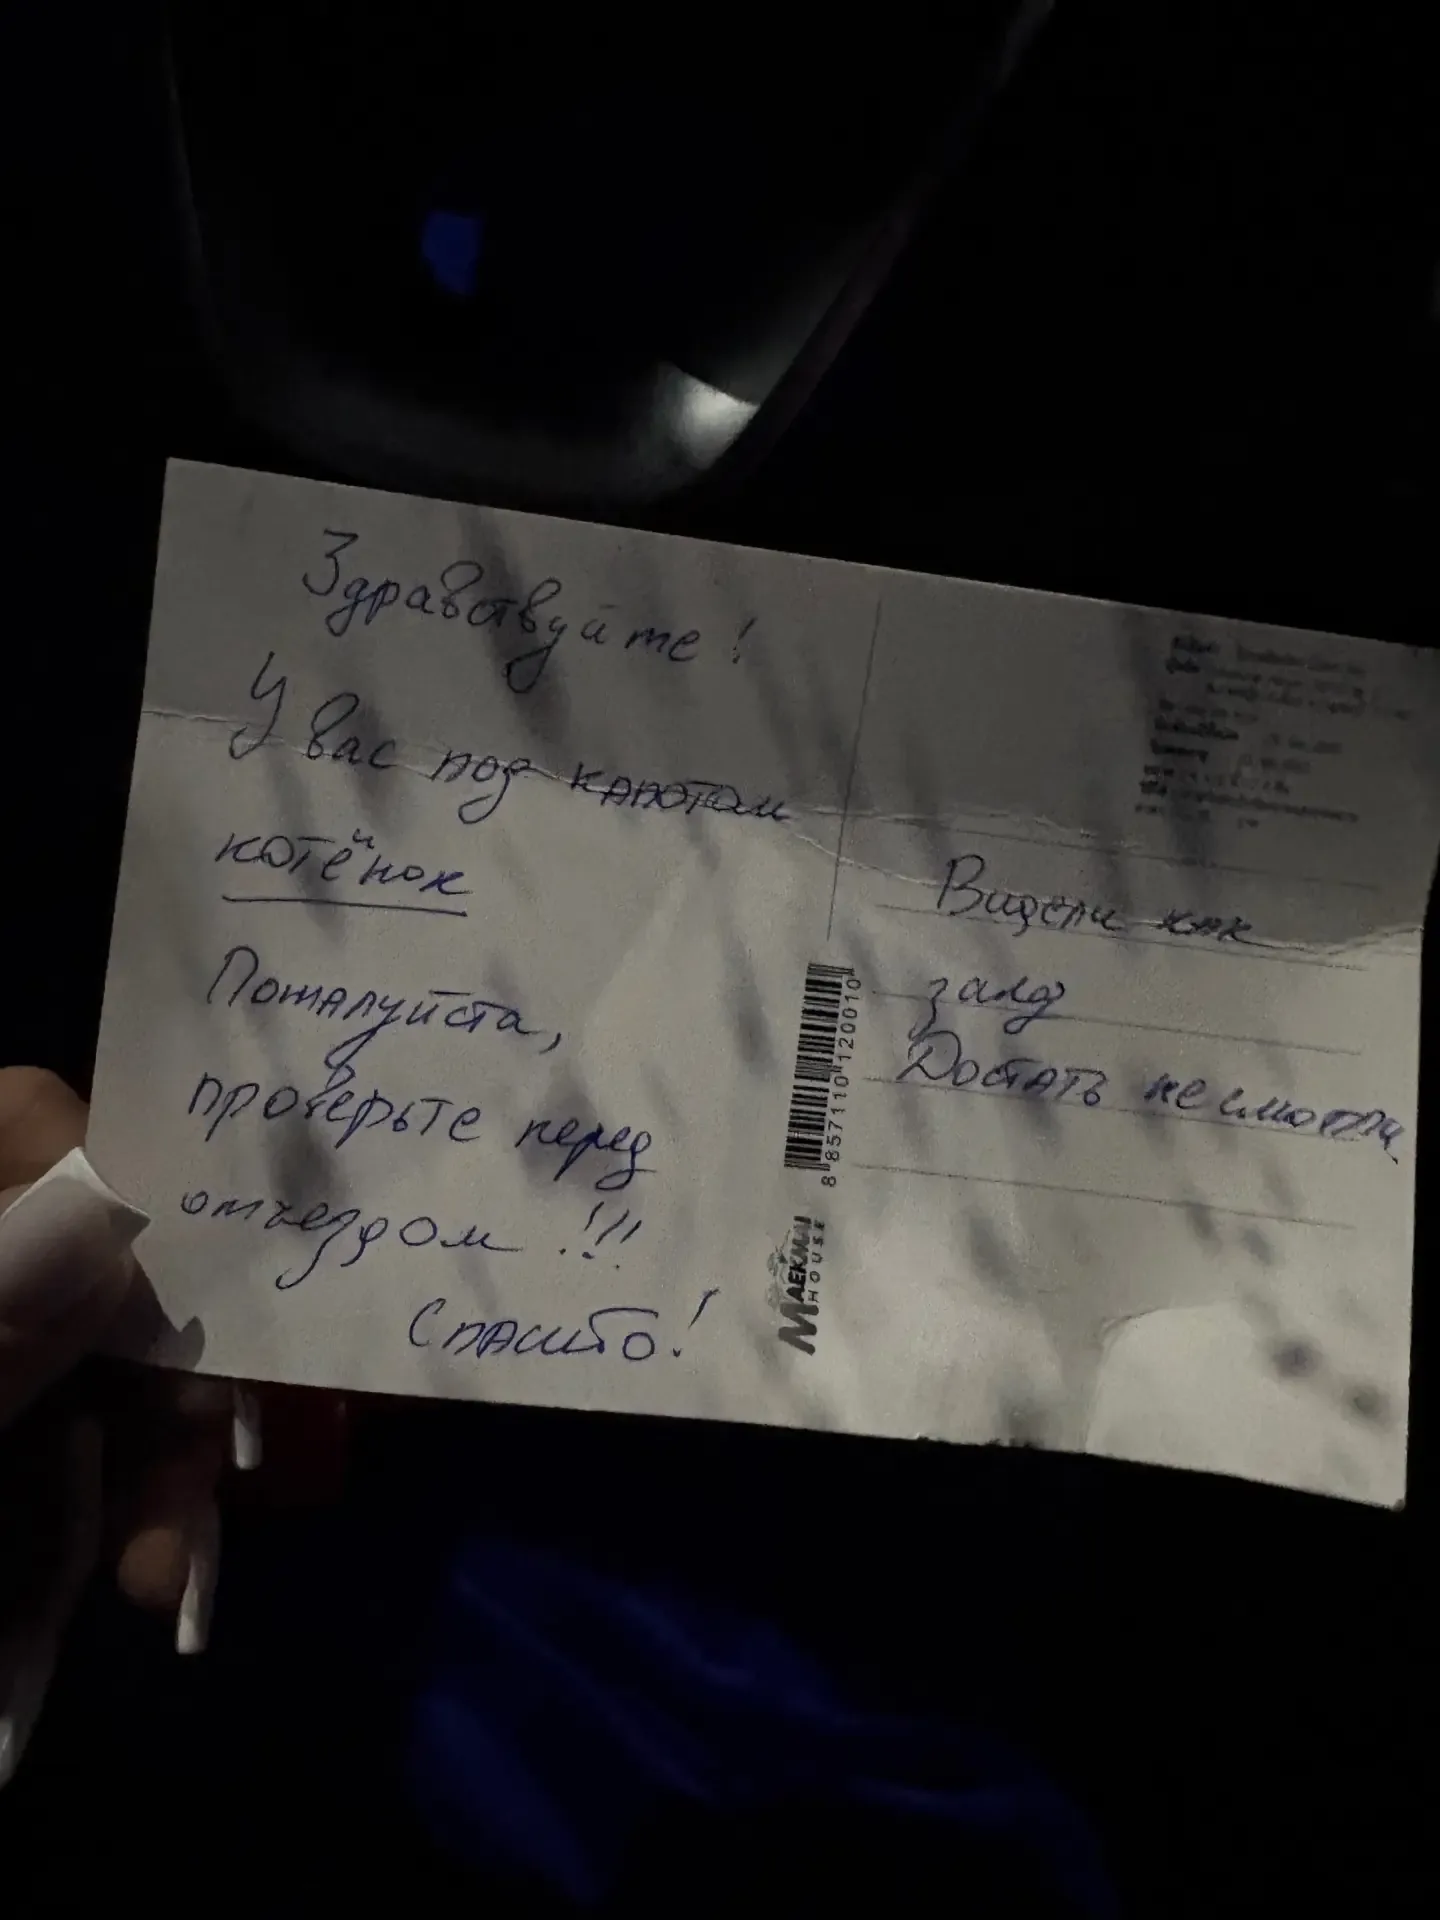 Здравствуйте!
У вас под капотом
котёнок
Пожалуйста,
проверьте перед
отъездом !!!
Спасибо!
Видели как
залез
Достать не смогли.
8 857110 120010
MAEKMAI
HOUSE